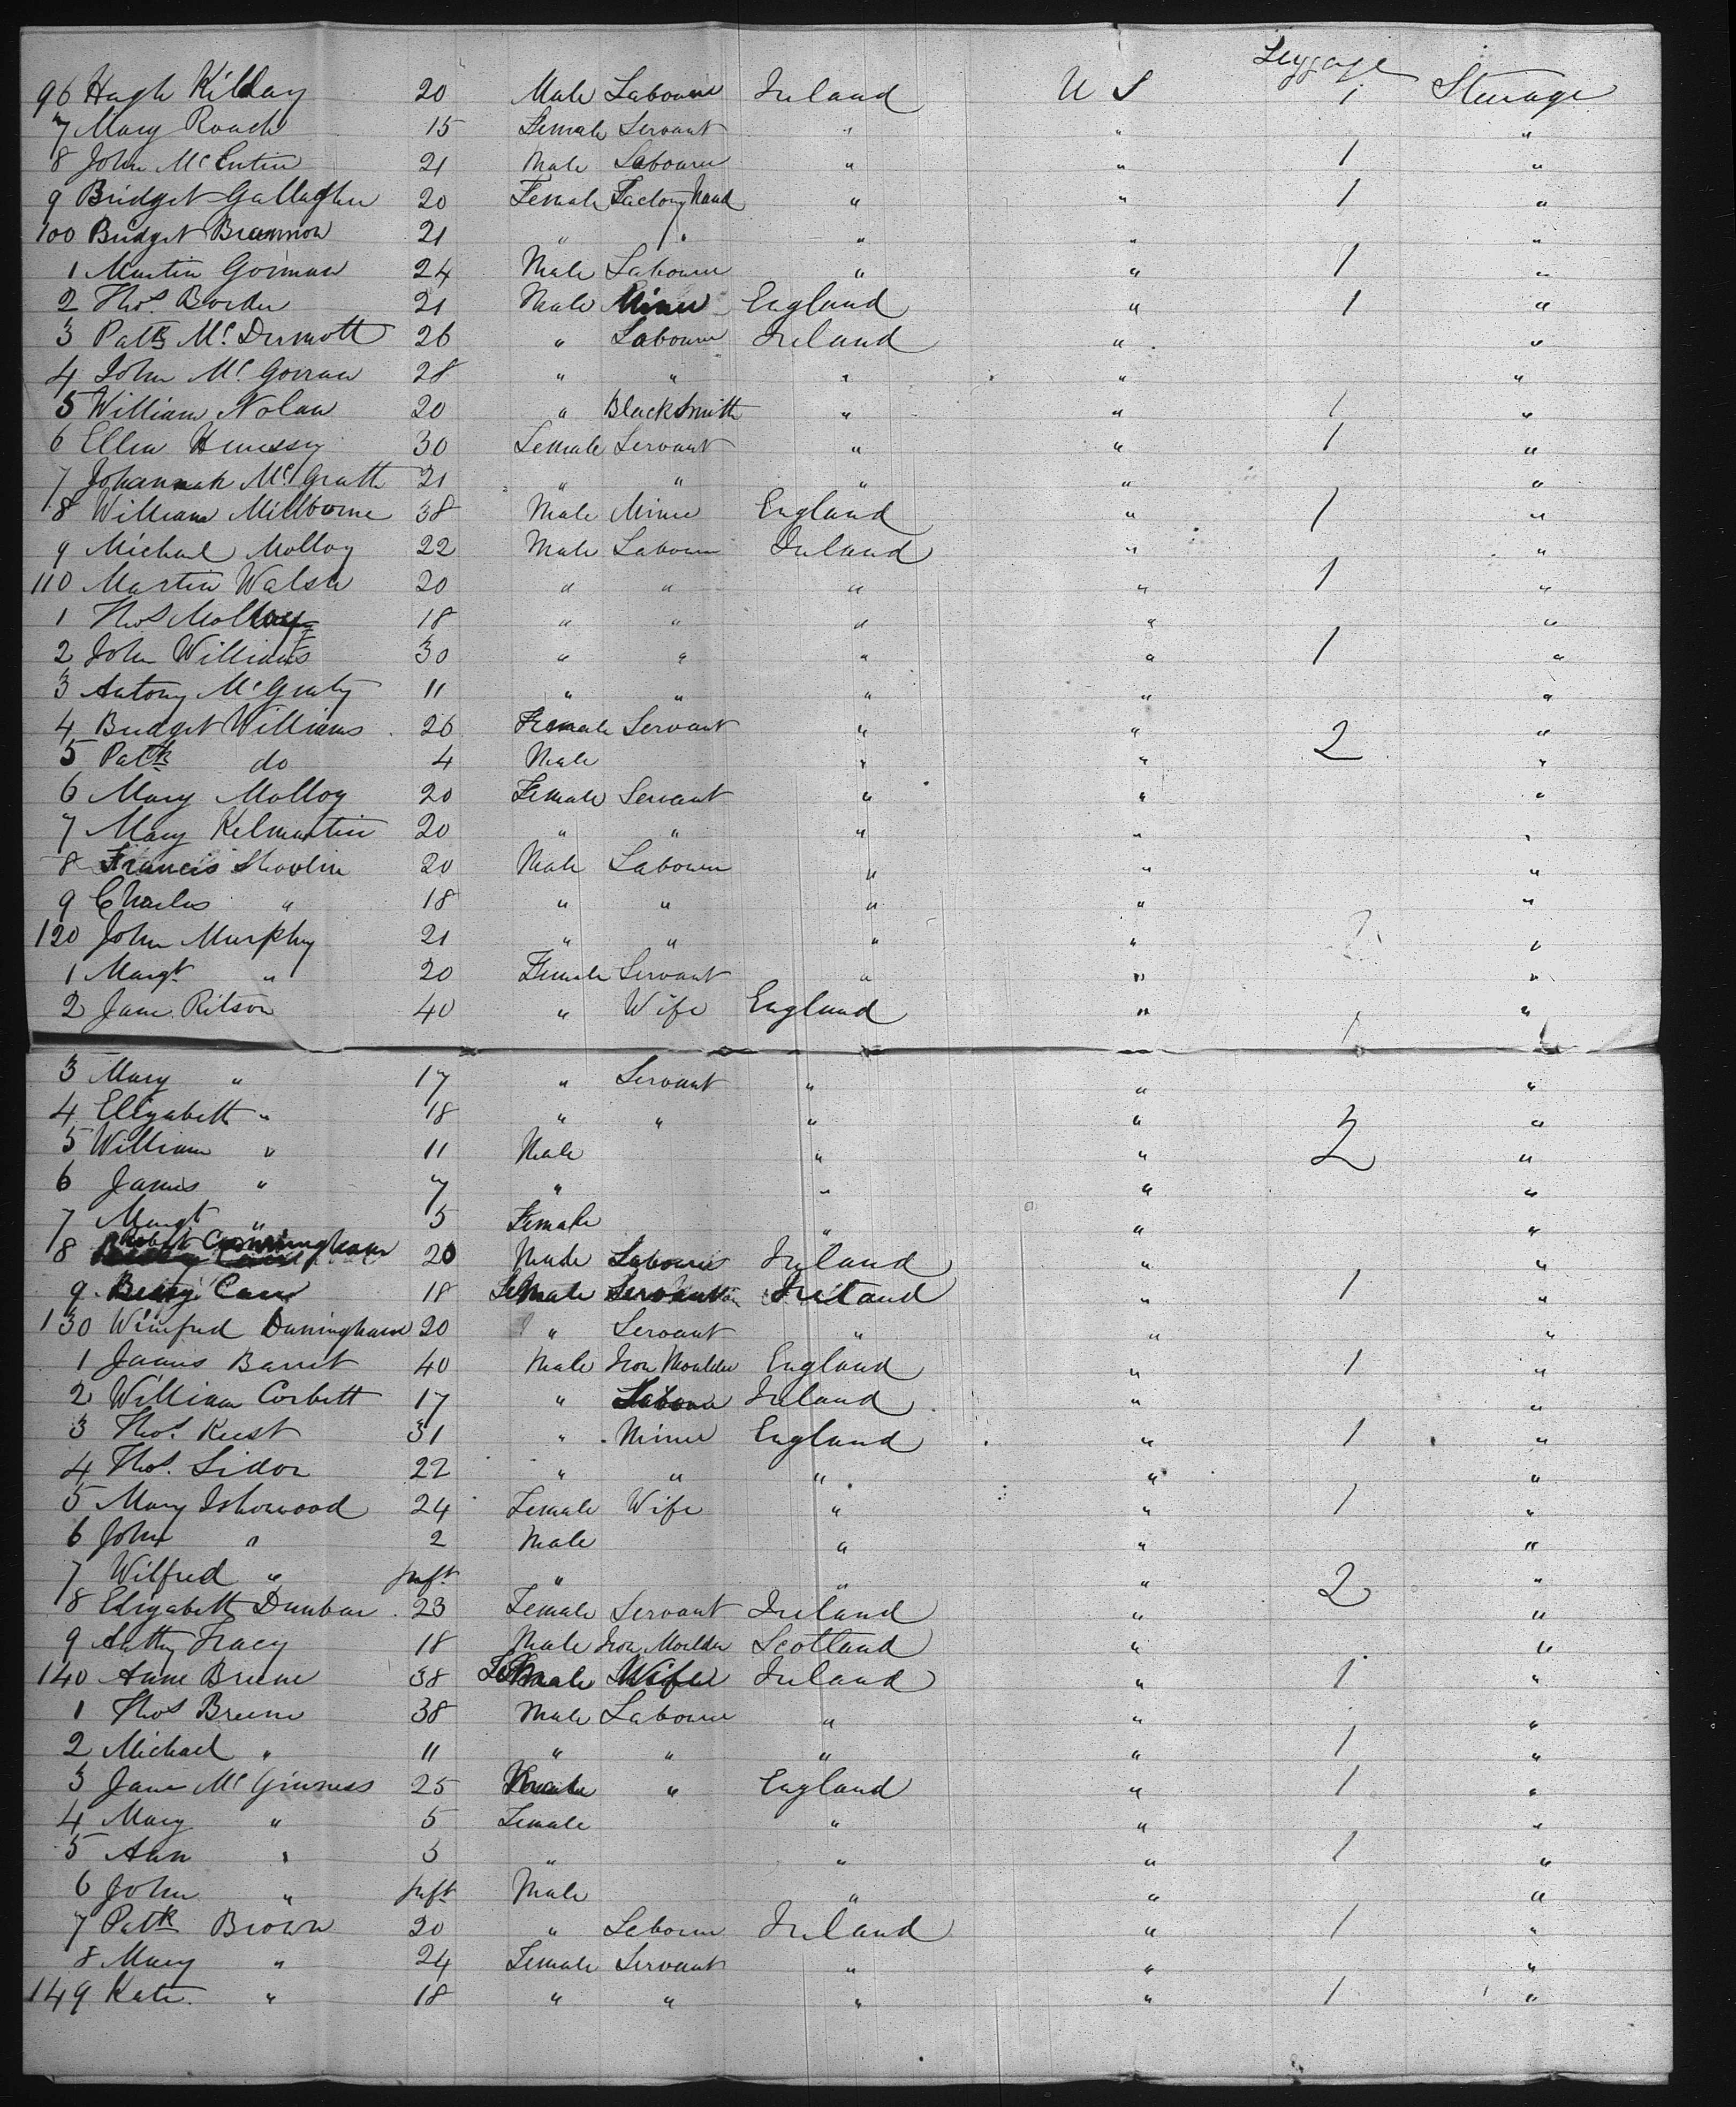 Luggage
96 Hugh Kilday 20 Male Labourer Ireland U S 1 Steerage
7 Mary Roach 15 Female Servant " " "
8 John McEntire 21 Male Labourer " " 1 "
9 Bridget Gallagher 20 Female Factory Hand " " 1 "
100 Bridget Brannon 21 " " " " "
1 Martin Gorman 24 Male Labourer " " 1 "
2 Thos. Border 21 Male Miner England " 1 "
3 Patk McDermott 26 " Labourer Ireland " "
4 John McGowan 28 " " " " "
5 William Nolan 20 " Blacksmith " " 1 "
6 Ellen Henessy 30 Female Servant " " 1 "
7 Johannah McGrath 21 " " " " "
8 William Millborne 38 Male Miner England " 1 "
9 Michael Molloy 22 Male Labourer Ireland " "
110 Martin Walsh 20 " " " " 1 "
1 Thos Molloy 18 " " " " "
2 John Williams 30 " " " " 1 "
3 Antony McGinty 11 " " " " "
4 Bridget Williams 26 Female Servant " " 2 "
5 Patk do 4 Male " " "
6 Mary Molloy 20 Female Servant " " "
7 Mary Kilmartin 20 " " " " "
8 Francis Shovlin 20 Male Labourer " " "
9 Charles " 18 " " " " "
120 John Murphy 21 " " " " "
1 Margt " 20 Female Servant " " "
2 Jane Ritson 40 " Wife England " 1 "
3 Mary " 17 " Servant " " "
4 Elizabeth " 18 " " " " "
5 William " 11 Male " " 2 "
6 James " 7 " " " "
7 Margt " 5 Female " " "
8 Robert Cunningham 20 Male Labourer Ireland " "
9 18 Female Servant Ireland " 1 "
130 Winifred Dunningham 20 " Servant " " "
1 James Barrit 40 Male Iron Moulder England " 1 "
2 William Corbett 17 " Labourer Ireland " "
3 Thos. 31 " Miner England " 1 "
4 Thos. 22 " " " " "
5 Mary Isherwood 24 Female Wife " " 1 "
6 John " 2 Male " " "
7 Wilfred " Inft " " " 2 "
8 Elizabeth Dunbar 23 Female Servant Ireland " "
9 Anthy Tracy 18 Male Iron Moulder Scotland " "
140 Anne Breene 38 Female Wife Ireland " 1 "
1 Thos Breene 38 Male Labourer " " "
2 Michael " 11 " " " " 1 "
3 Jane McGinness 25 Female " England " 1 "
4 Mary " 5 Female " " "
5 Ann " 3 " " " 1 "
6 John " Inft Male " " "
7 Patk Brown 20 " Labourer Ireland " 1 "
8 Mary " 24 Female Servant " " "
149 Kate " 18 " " " " 1 "